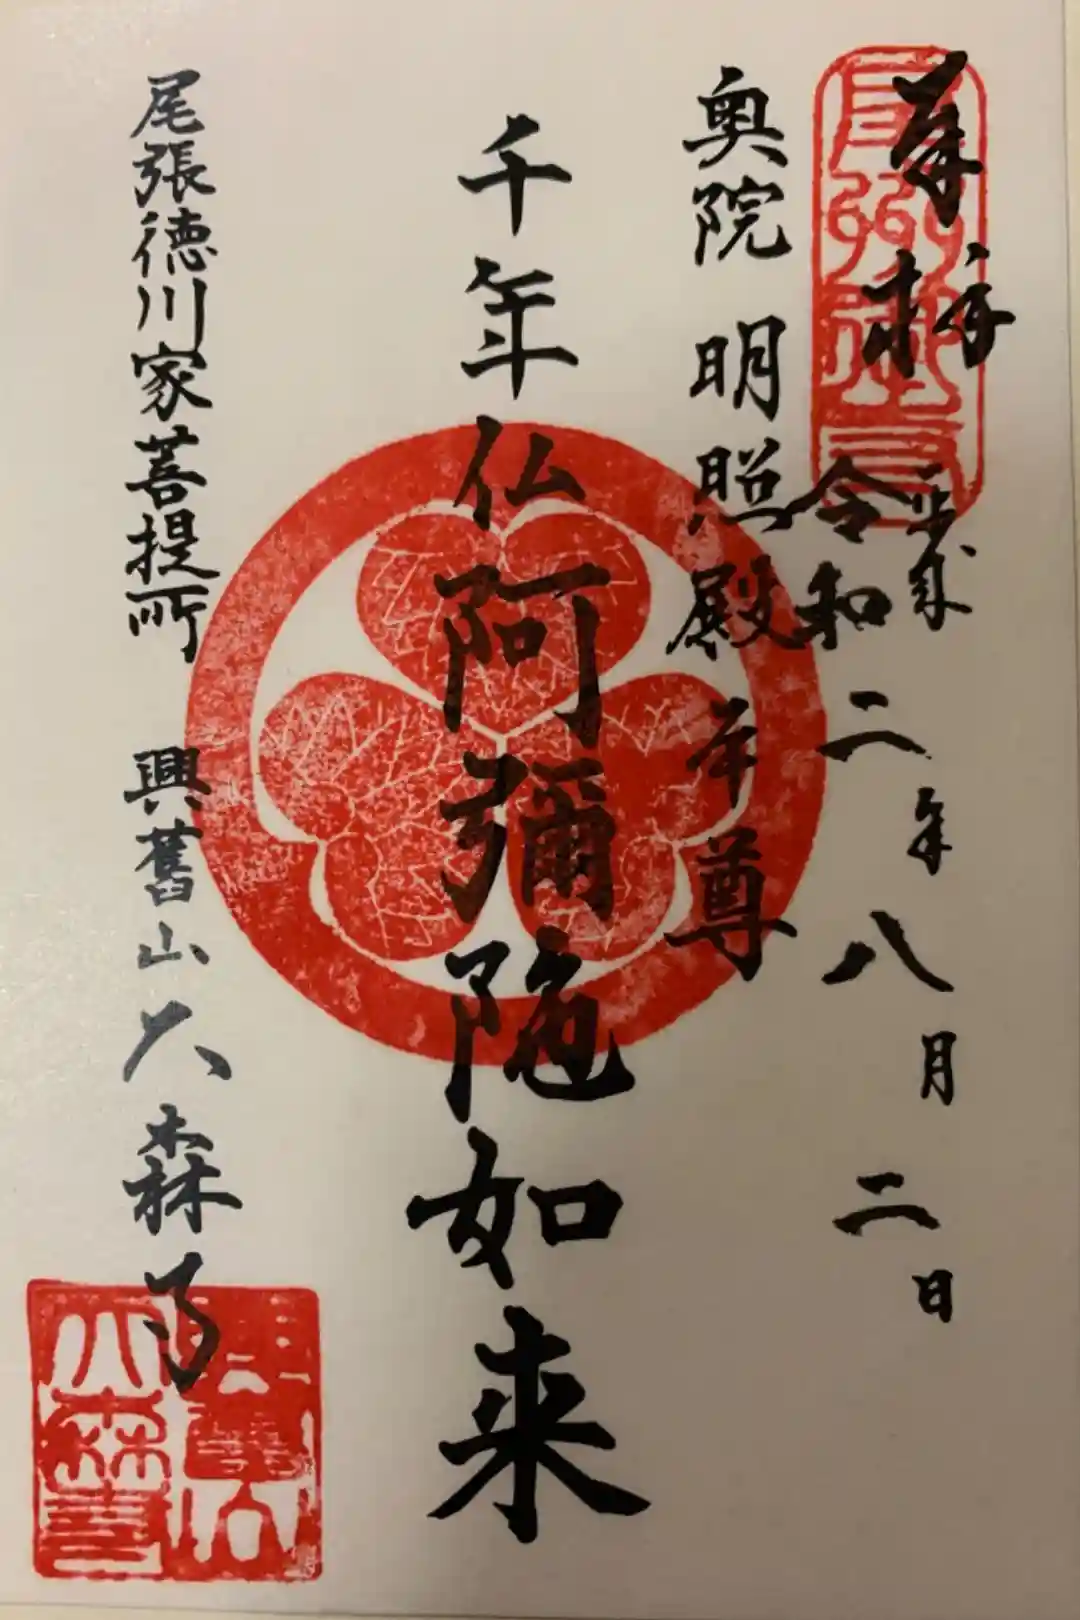 奉拝
令和二年八月二日
奥院 明照殿 本尊
千年仏阿彌陀如来
尾張徳川家菩提所 興舊山大森寺